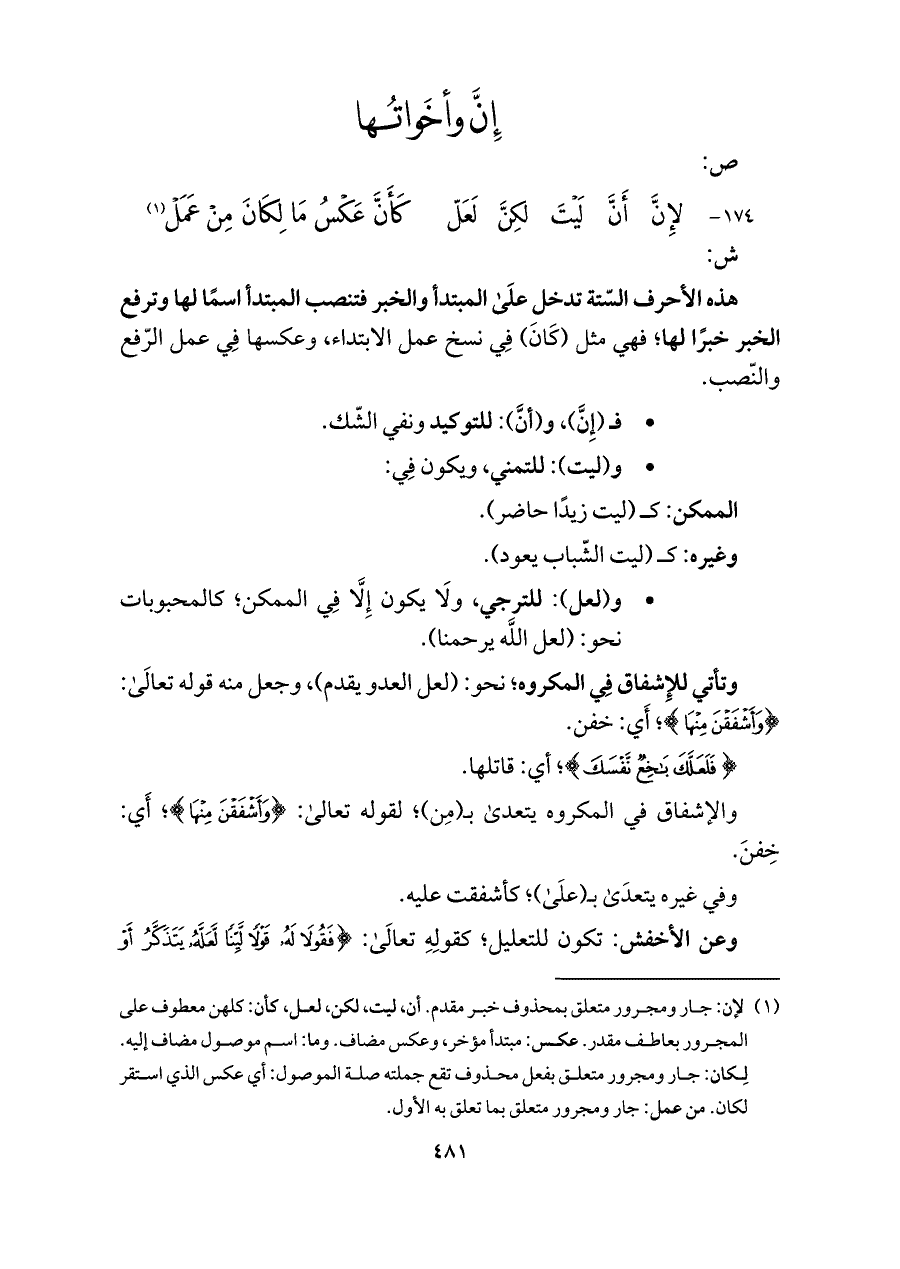 إِنَّ وأخَواتُـها
ص:
١٧٤- لإِنَّ أَنَّ لَيْتَ لَكِنَّ لَعَلّ كَأَنَّ عَكْسُ مَا لِكَانَ مِنْ عَمَلْ(١)
ش:
هذه الأحرف السّتة تدخل علَىٰ المبتدأ والخبر فتنصب المبتدأ اسمًا لها وترفع
الخبر خبرًا لها؛ فهي مثل (كَانَ) فِي نسخ عمل الابتداء، وعكسها فِي عمل الرّفع
والنّصب.
• فـ (إِنَّ)، و(أَنَّ): للتوكيد ونفي الشّك.
• و(ليت): للتمني، ويكون فِي:
الممكن: كـ (ليت زيدًا حاضر).
وغيره: كـ (ليت الشّباب يعود).
• و(لعل): للترجي، ولَا يكون إِلَّا فِي الممكن؛ كالمحبوبات
نحو: (لعل اللَّه يرحمنا).
وتأتي للإِشفاق فِي المكروه؛ نحو: (لعل العدو يقدم)، وجعل منه قوله تعالَىٰ:
﴿وَأَشْفَقْنَ مِنْهَا﴾؛ أَي: خفن.
﴿فَلَعَلَّكَ بَٰخِعٌ نَّفْسَكَ﴾؛ أي: قاتلها.
والإشفاق في المكروه يتعدىٰ بـ(مِن)؛ لقوله تعالىٰ: ﴿وَأَشْفَقْنَ مِنْهَا﴾؛ أَي:
خِفنَ.
وفي غيره يتعدَىٰ بـ(علَىٰ)؛ كأشفقت عليه.
وعن الأخفش: تكون للتعليل؛ كقولِهِ تعالَىٰ: ﴿فَقُولَا لَهُۥ قَوْلًا لَّيِّنًا لَّعَلَّهُۥ يَتَذَكَّرُ أَوْ
(١) لإن: جار ومجرور متعلق بمحذوف خبر مقدم. أن، ليت، لكن، لعل، كأن: كلهن معطوف على
المجرور بعاطف مقدر. عكس: مبتدأ مؤخر، وعكس مضاف. وما: اسم موصول مضاف إليه.
لكان: جار ومجرور متعلق بفعل محذوف تقع جملته صلة الموصول: أي عكس الذي استقر
لكان. من عمل: جار ومجرور متعلق بما تعلق به الأول.
٤٨١